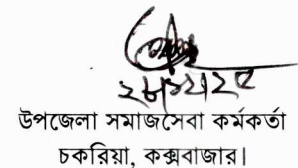 উপজেলা সমাজসেবা কর্মকর্তা
চকরিয়া, কক্সবাজার।